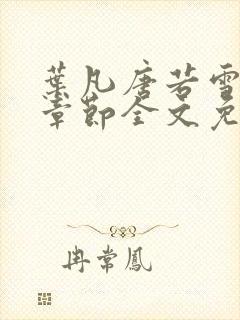 葉凡唐若雪
章節全文免
冉常鳳